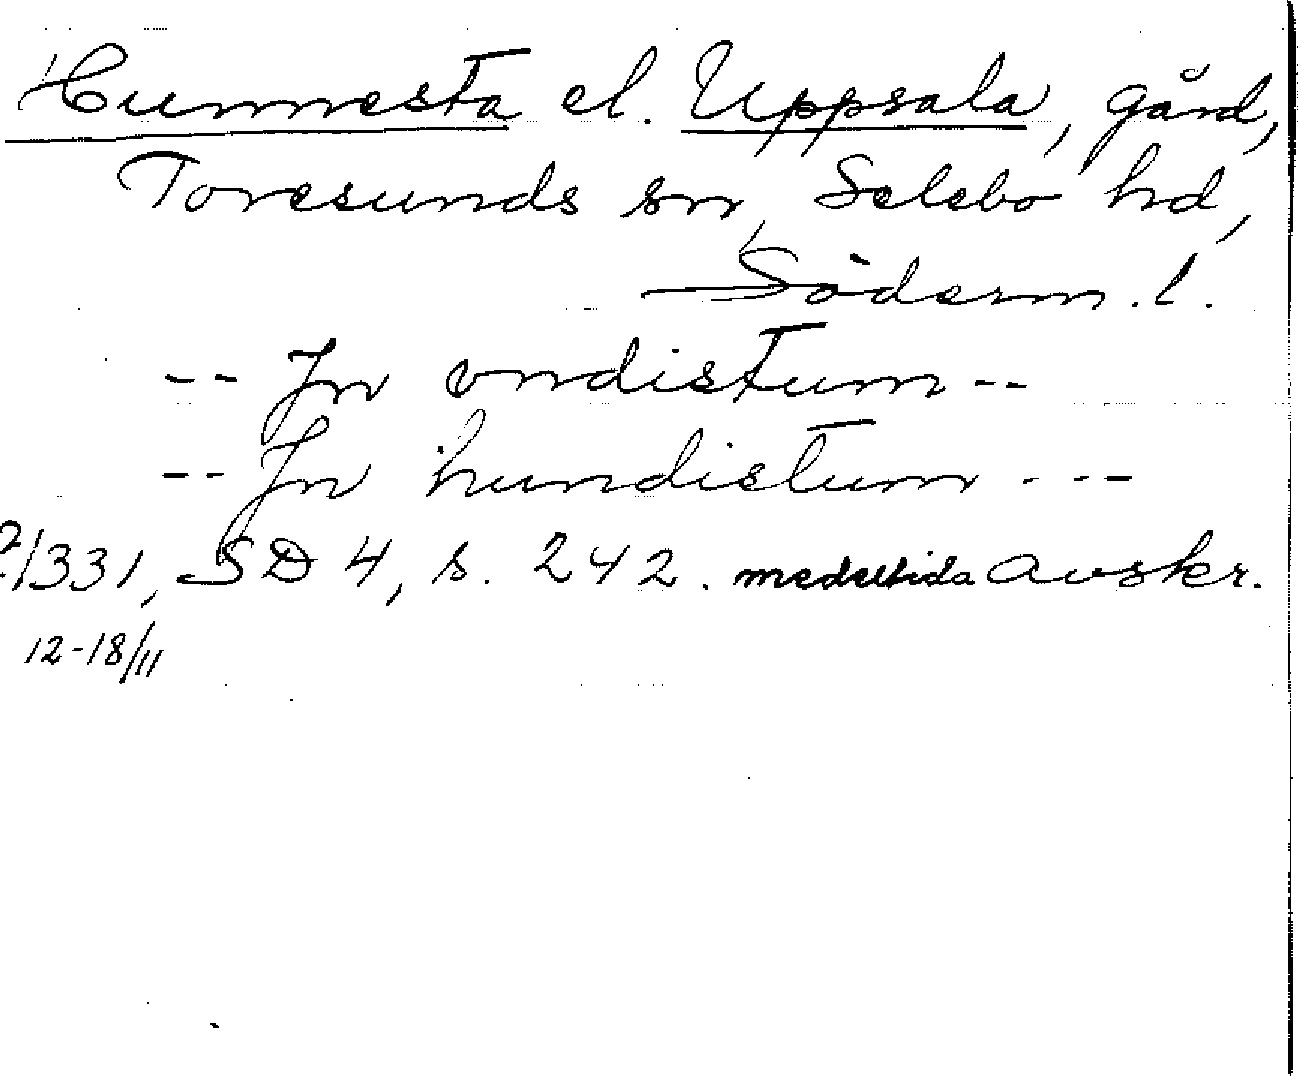 Hunnesta el. Uppsala, gård,
Toresunds sn, Selebo hd,
Söderm. l.
-- Jn vndistum --
-- Jn hundistum ---
1331, SD 4, s. 242. medeltida avskr.
12-18/11